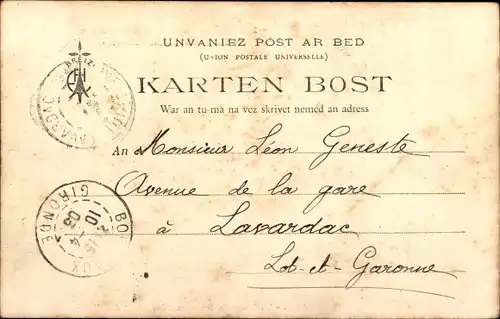 UNVANIEZ POST AR BED
(UNION POSTALE UNIVERSELLE)
KARTEN BOST
War an tu-ma na vez skrivet nemed an adress
An Monsieur Léon Geneste
Avenue de la gare
à Lavardac
Lot-et-Garonne
BREIZ
LAVARDAC
GIRONDE
10
05